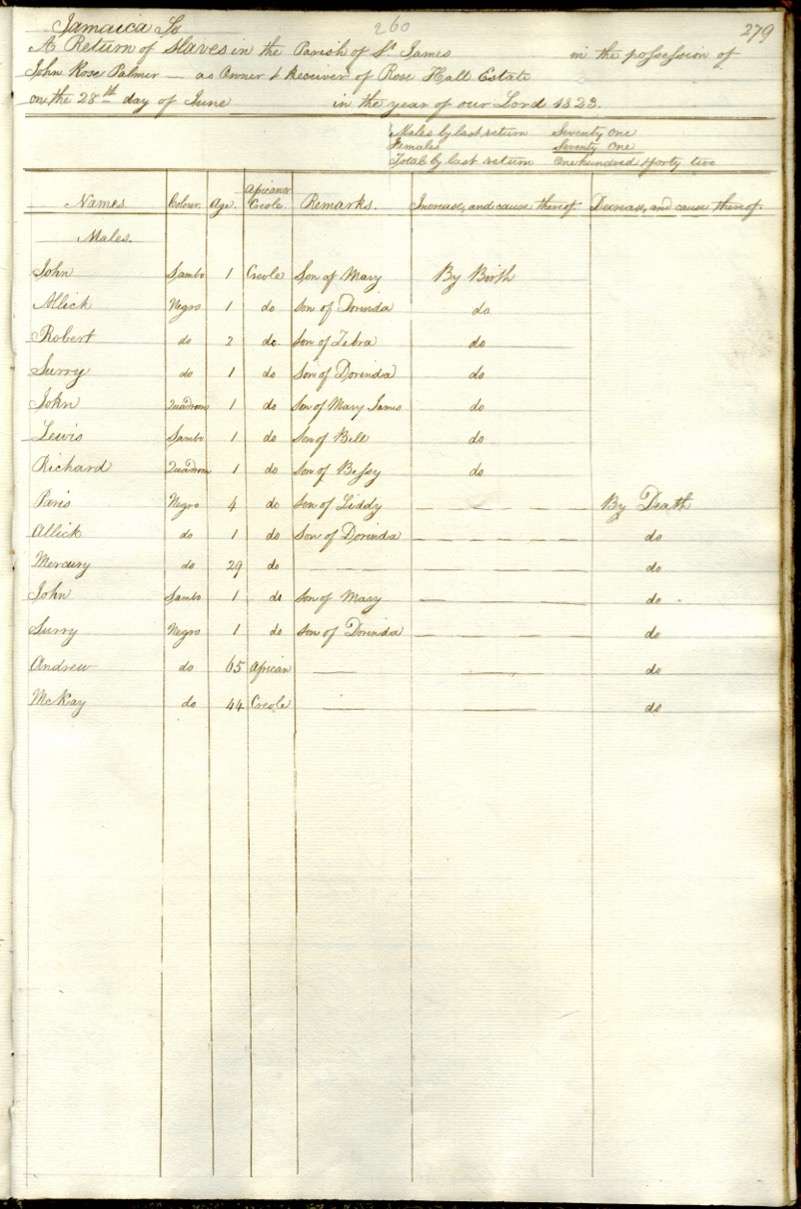 Jamaica Ss 260 279
A Return of Slaves in the Parish of St. James in the possession of
John Rose Palmer — as Owner & Receiver of Rose Hall Estate
on the 28th day of June in the year of our Lord 1823.
Males by last return Seventy One
Females Seventy One
Total by last return One hundred & forty two
Names Colour. Age. African or Creole. Remarks. Increase, and cause thereof. Decrease, and cause thereof.
Males.
John Sambo 1 Creole Son of Mary By Birth
Allick Negro 1 do son of Dorinda do
Robert do 2 do son of Zebra do
Surry do 1 do Son of Dorinda do
John Quadroon 1 do Son of Mary James do
Lewis Sambo 1 do Son of Bell do
Richard Quadroon 1 do Son of Bessy do
Paris Negro 4 do Son of Liddy — — — — By Death
Allick do 1 do Son of Dorinda — — — — do
Mercury do 29 do — — — — — — do
John Sambo 1 do son of Mary — — do
Surry Negro 1 do son of Dorinda — — — — do
Andrew do 65 African — — do
McKay do 44 Creole — — do